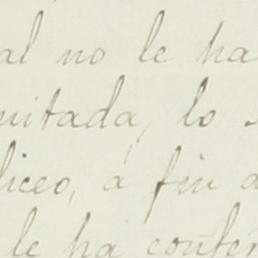 al no le ha
uitada, lo
liceo, á fin
le ha confer